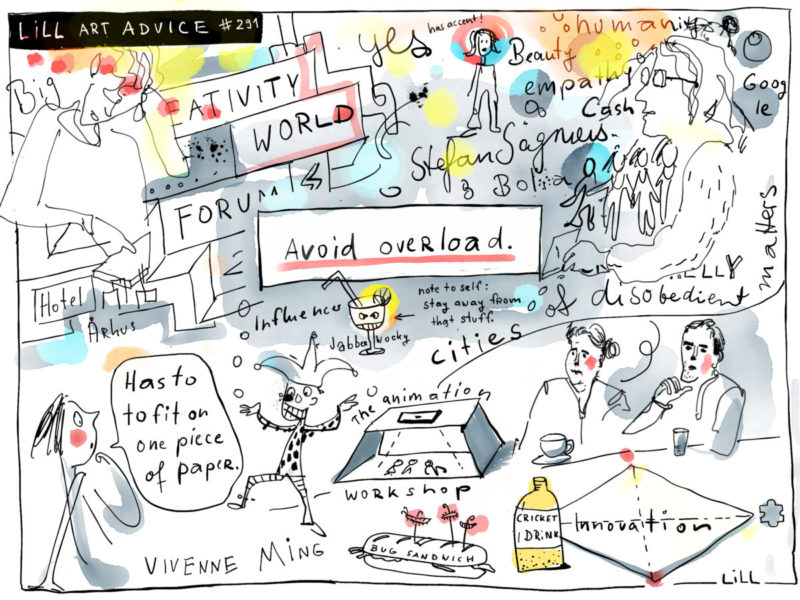 LiLL ART ADVICE #291
Big
EATIVITY
WORLD
FORUM
yes
has accent!
Beauty
humanity
empathy
Cash
Goog
le
Stefan Sagmeis.
& Bolu
matters
Avoid overload.
Hotel
Århus
Influence
Jabberwocky
note to self:
stay away from
that stuff.
of disobedient
cities
Has to
to fit on
one piece
of paper.
The animation
WORKSHOP
VIVENNE MING
BUG SANDWICH
CRICKET
DRINK
Innovation
LiLL